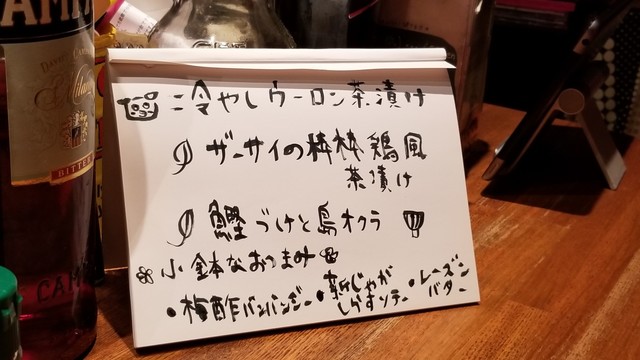 CAMPARI
DAVIDE CAMPARI
BITTER
CAMPARI
冷やしウーロン茶漬け
ザーサイの棒棒鶏風
茶漬け
鰹づけと島オクラ
小鉢なおつまみ
・梅酢バンバンジー
・新じゃが
しらすソテー
・レーズン
バター